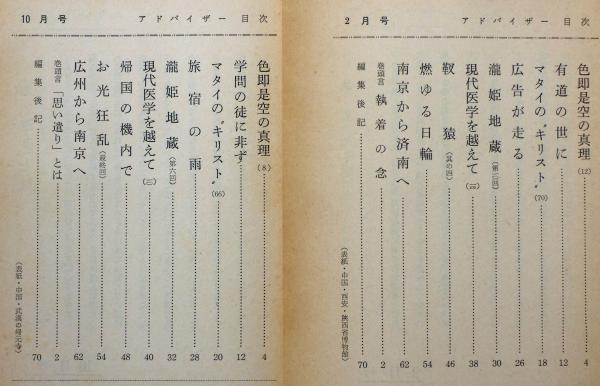 2月号 アドバイザー 目次
色即是空の真理 (12) 4
有道の世に 12
マタイの〝キリスト〟 (70) 18
広告が走る 26
瀧姫地蔵 (第二回) 30
現代医学を越えて 38
靫猿 (其の四) 46
燃ゆる日輪 54
南京から済南へ 62
巻頭言 執着の念 2
編集後記 70
(表紙・中国・西安・陝西省博物館)
10月号 アドバイザー 目次
色即是空の真理 (8) 4
学問の徒に非ず 12
マタイの〝キリスト〟 (66) 20
旅宿の雨 28
瀧姫地蔵 (第六回) 32
現代医学を越えて (三) 40
帰国の機内で 48
お光狂乱 (最終回) 54
広州から南京へ 62
巻頭言 「思い遣り」とは 2
編集後記 70
(表紙・中国・武漢の帰元寺)